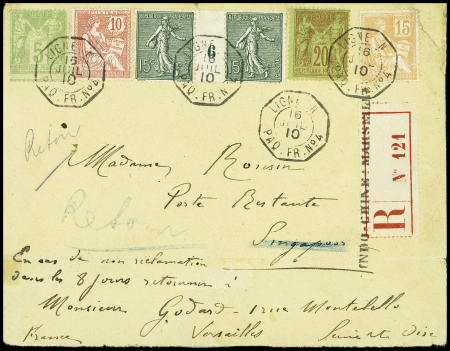 5 10 15 6 15 20 15
LIGNE N
16
JUIL
10
PAQ. FR. Nº 4
LIGNE N
16
JUIL
10
PAQ. FR. N
LIGNE N
16
JUIL
10
PAQ. FR. Nº 4
LIGNE N
16
JUIL
10
PAQ. FR. Nº 4
Retour
Madame Rousin
Poste Restante
Singapoor
Retour
INDO-CHINE-MARSEILLE
R Nº 121
En cas de non réclamation
dans les 8 jours retourner à
Monsieur Godard - 1 rue Montebello
France Versailles Seine et Oise